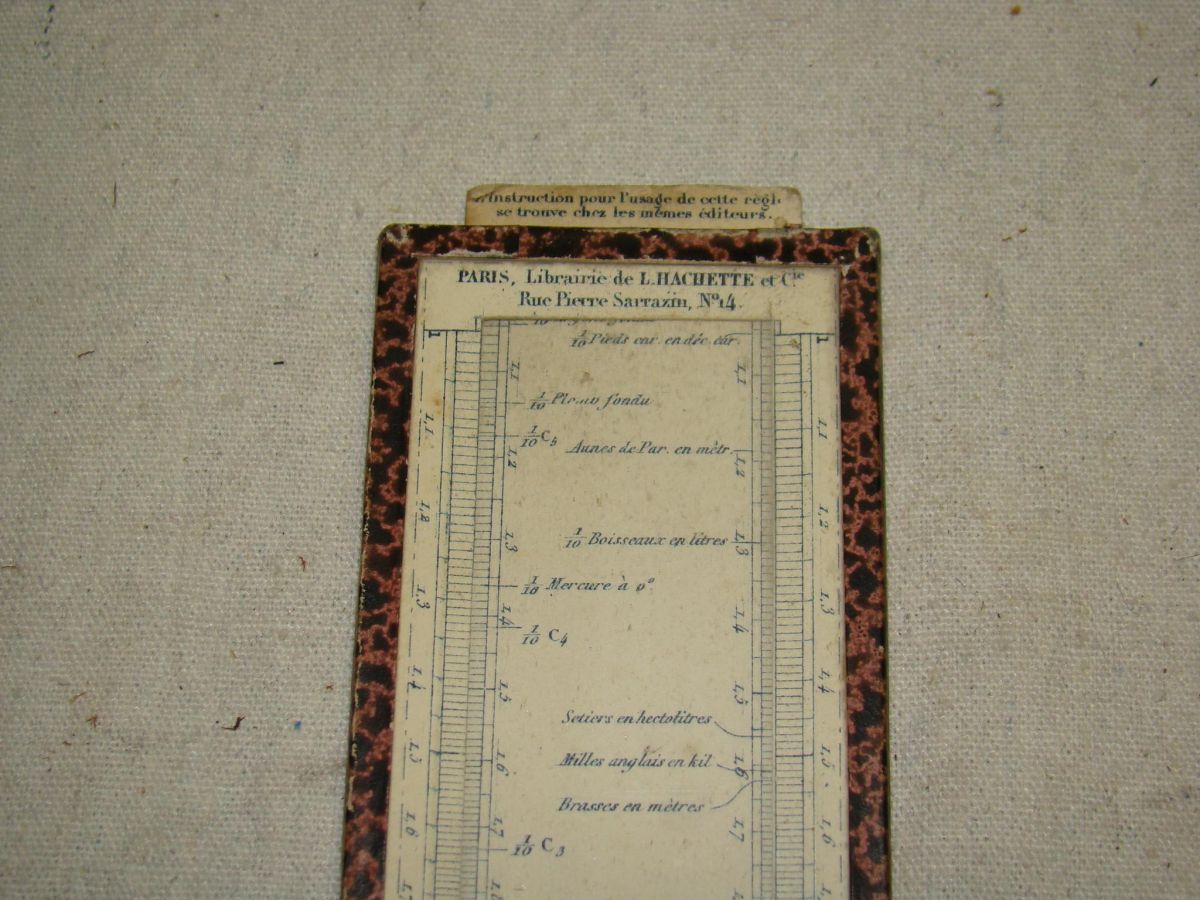 Instruction pour l'usage de cette règle
se trouve chez les mêmes éditeurs.
PARIS, Librairie de L. HACHETTE et Cie
Rue Pierre Sarrazin, No 14.
1/10 Pieds car. en déc. car.
1 1
1,1 1,1
1/10 Plomb fondu
1/10 C5
1,1 1,1
Aunes de Par. en mètr.
1,2 1,2
1,2 1,2
1/10 Boisseaux en litres
1,3 1,3
1/10 Mercure à 0°
1,3 1,3
1,4 1,4
1/10 C4
1,4 1,4
1,5 1,5
Setiers en hectolitres
1,5 1,5
Milles anglais en kil
1,6 1,6
Brasses en mètres
1,6 1,6
1,7 1,7
1/10 C3